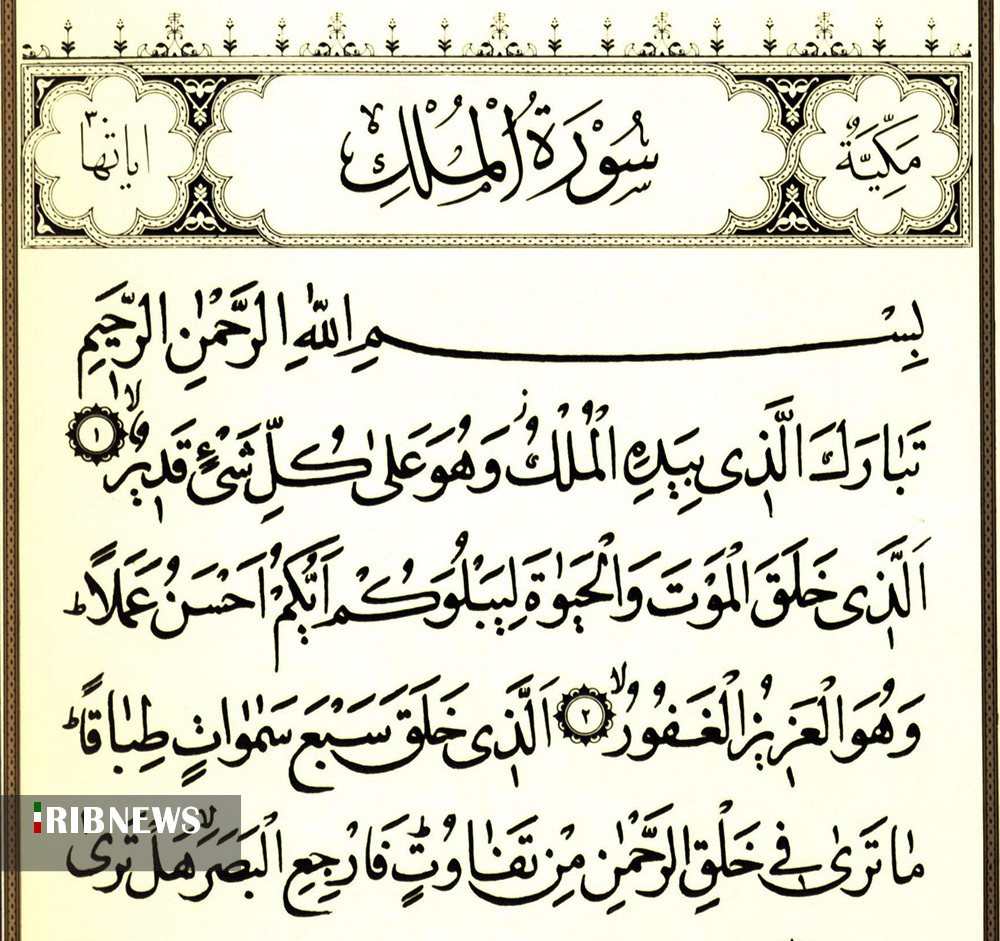 مَكِّيَّةٌ سُوْرَةُ الْمُلْكِ اياتها ٣٠
بِسْمِ اللّٰهِ الرَّحْمٰنِ الرَّحيمِ
تَبٰارَكَ الَّذى بِيَدِهِ الْمُلْكُ ز وَهُوَ عَلىٰ كُلِّ شَىْءٍ قَديرٌ لا ١
اَلَّذى خَلَقَ الْمَوْتَ وَالْحَيٰوةَ لِيَبْلُوَكُمْ اَيُّكُمْ اَحْسَنُ عَمَلاً ط
وَهُوَ الْعَزيزُ الْغَفُورُ لا ٢ اَلَّذى خَلَقَ سَبْعَ سَمٰوٰاتٍ طِبٰاقًا ط
مٰا تَرىٰ فى خَلْقِ الرَّحْمٰنِ مِنْ تَفٰاوُتٍ ط فَارْجِعِ الْبَصَرَ لا هَلْ تَرىٰ
IRIBNEWS